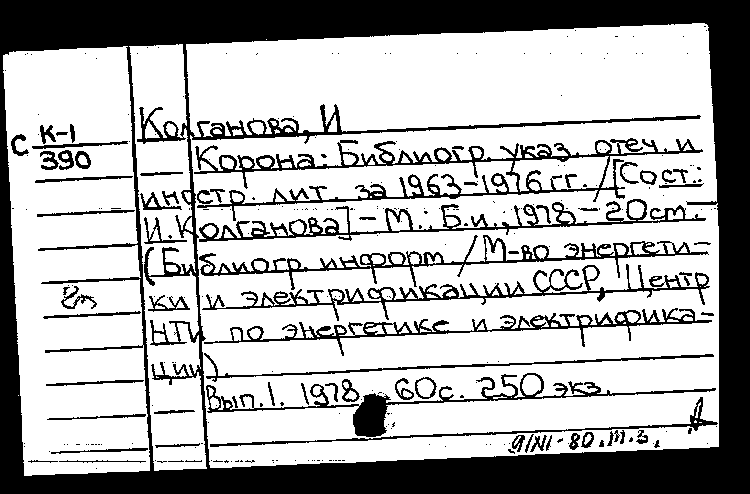 Колганова, И
С К-1
390
Корона: Библиогр. указ. отеч. и
иностр. лит. за 1963-1976 гг. /[Сост.:
И. Колганова] - М.: Б.и., 1978 - 20 см. -
(Библиогр. информ / М-во энергети=
ки и электрификации СССР, Центр
НТИ по энергетике и электрифика=
ции).
Вып. 1. 1978 60 с. 250 экз.
9/XI-80. т.з.